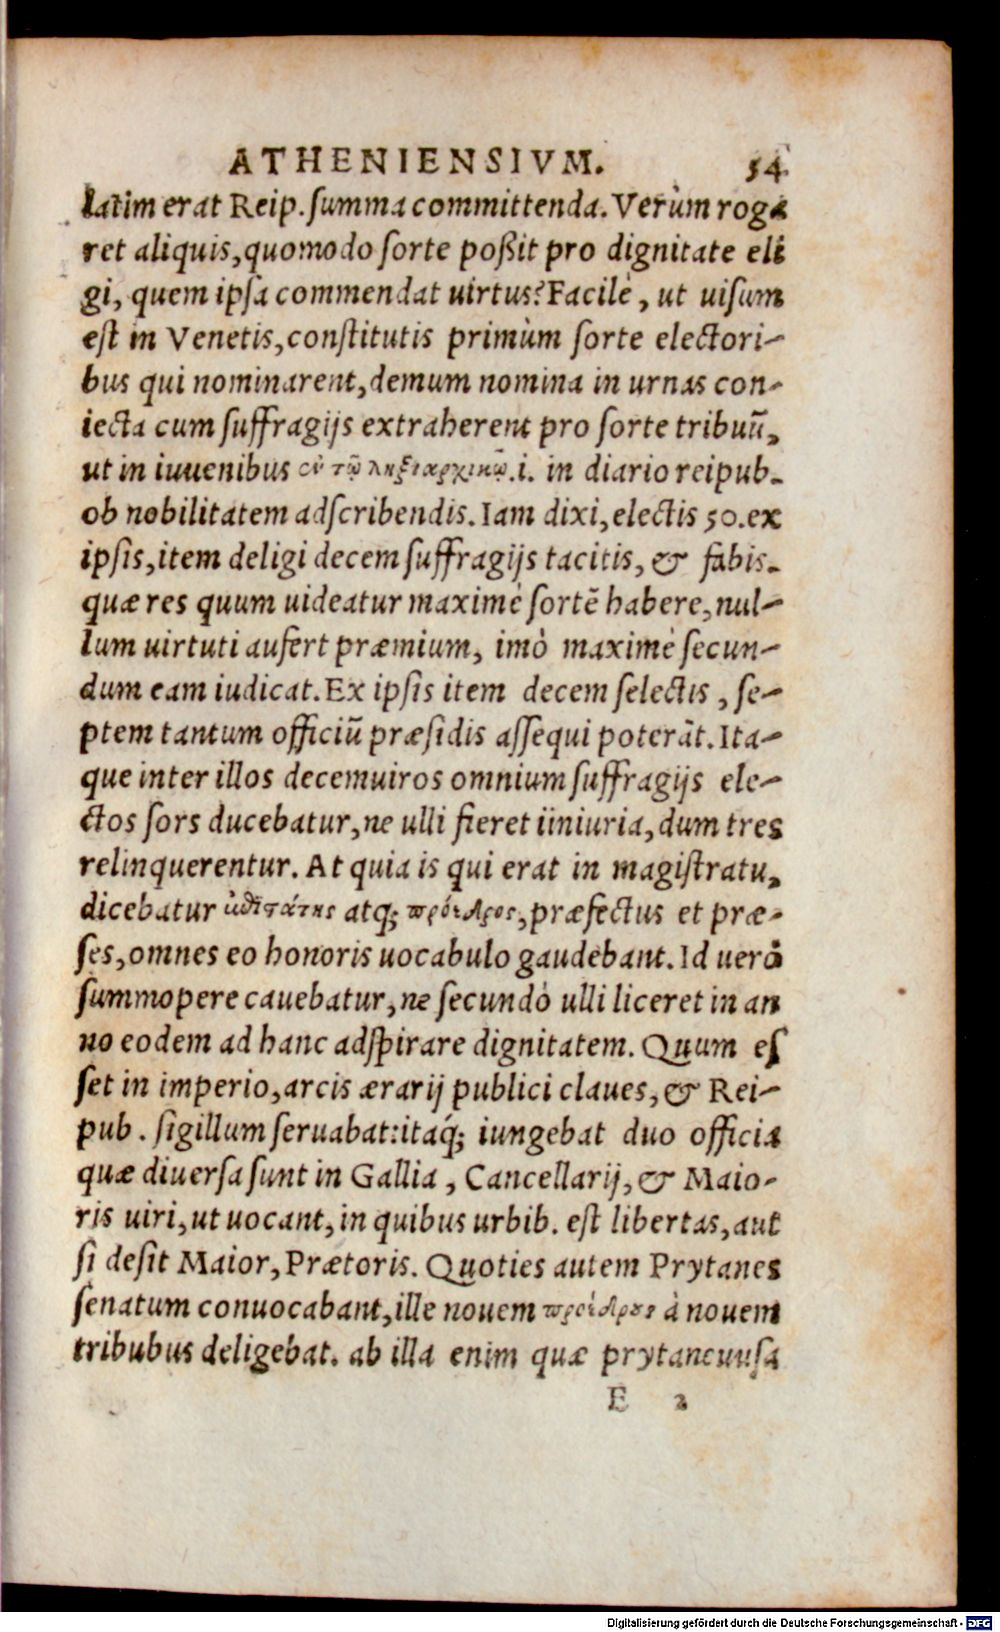 ATHENIENSIVM. 34
latim erat Reip. ſumma committenda. Verùm roga
ret aliquis, quomodo ſorte poßit pro dignitate eli
gi, quem ipſa commendat uirtus? Facilè, ut uiſum
eſt in Venetis, conſtitutis primùm ſorte electori-
bus qui nominarent, demum nomina in urnas con-
iecta cum ſuffragijs extraherent pro ſorte tribuū,
ut in iuuenibus ἐν τῶ ληξιαρχικῶ .i. in diario reipub.
ob nobilitatem adſcribendis. Iam dixi, electis 50. ex
ipſis, item deligi decem ſuffragijs tacitis, & fabis.
quæ res quum uideatur maximè ſortē habere, nul-
lum uirtuti aufert præmium, imò maximè ſecun-
dum eam iudicat. Ex ipſis item decem ſelectis, ſe-
ptem tantum officiū præſidis aſſequi poterāt. Ita-
que inter illos decemuiros omnium ſuffragijs ele-
ctos ſors ducebatur, ne ulli fieret iiniuria, dum tres
relinquerentur. At quia is qui erat in magiſtratu,
dicebatur ἐπιστάτης atq; πρόεδρος, præfectus et præ-
ſes, omnes eo honoris uocabulo gaudebant. Id uerò
ſummopere cauebatur, ne ſecundò ulli liceret in an
no eodem ad hanc adſpirare dignitatem. Quum eſ
ſet in imperio, arcis ærarij publici claues, & Rei-
pub. ſigillum ſeruabat: itaq́; iungebat duo officia
quæ diuerſa ſunt in Gallia, Cancellarij, & Maio-
ris uiri, ut uocant, in quibus urbib. eſt libertas, aut
ſi deſit Maior, Prætoris. Quoties autem Prytanes
ſenatum conuocabant, ille nouem προέδρους à nouem
tribubus deligebat. ab illa enim quæ prytaneuuſa
E 2
Digitalisierung gefördert durch die Deutsche Forschungsgemeinschaft - DFG